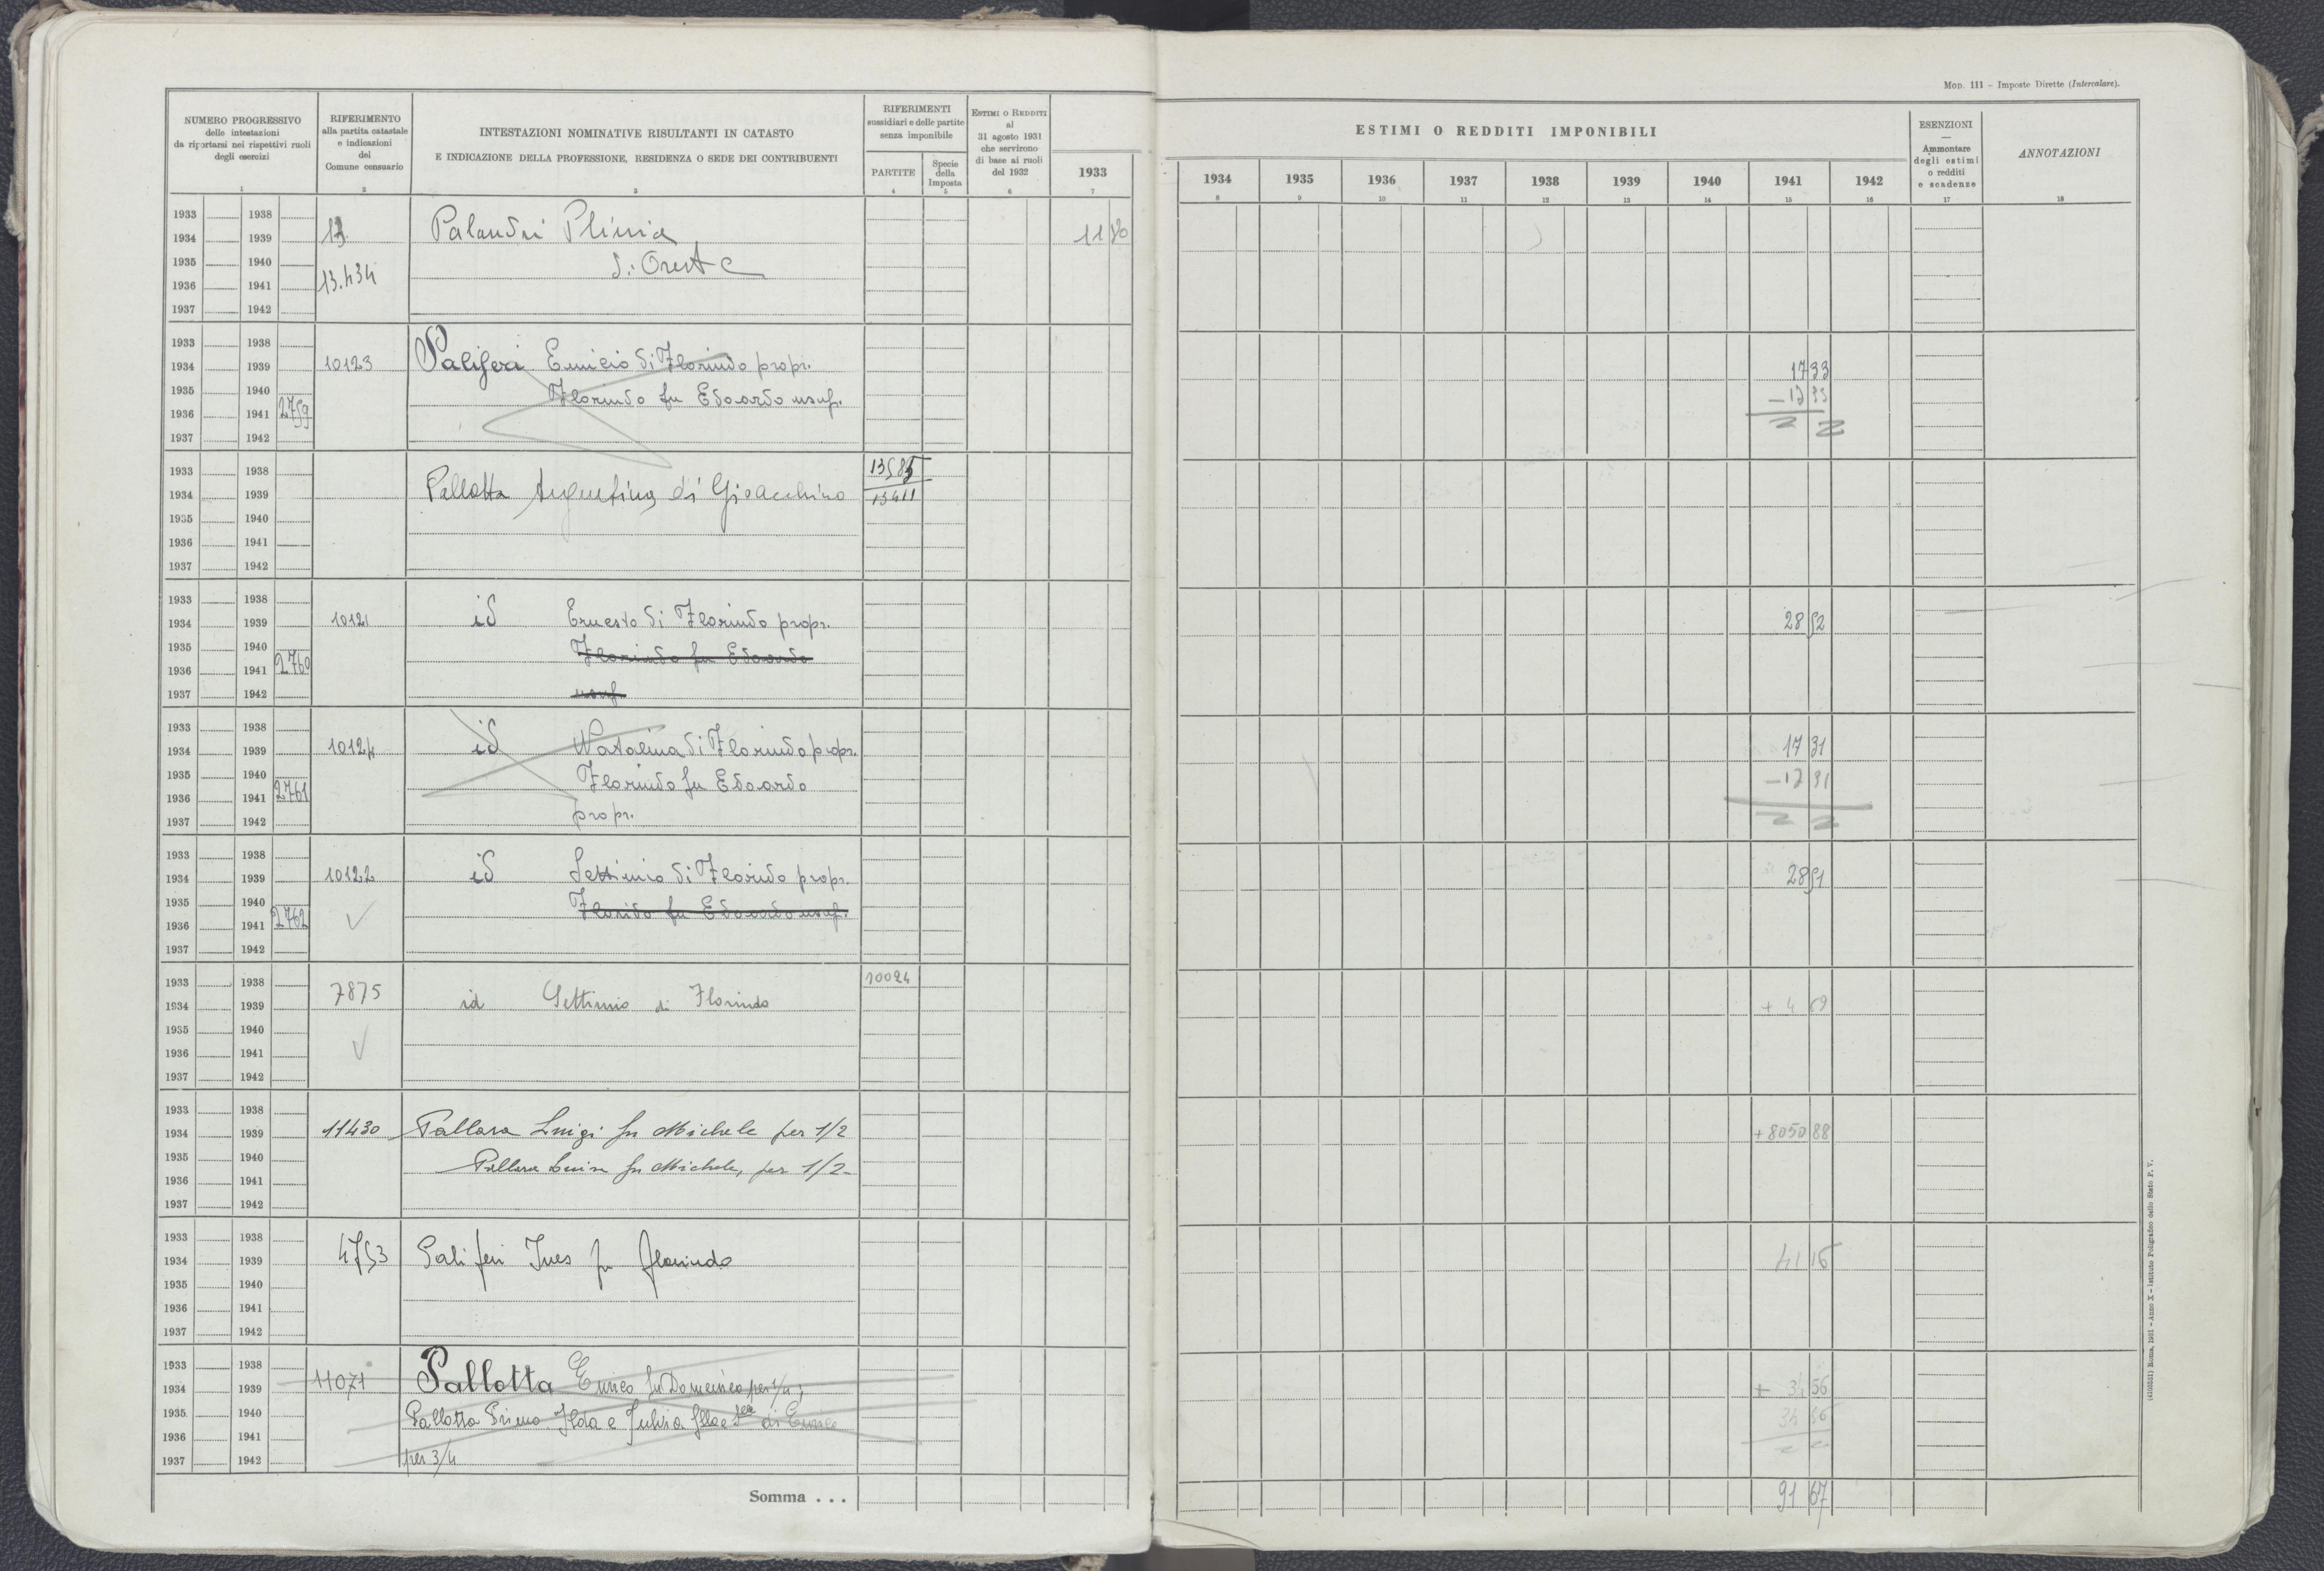 MOD. 111 – Imposte Dirette (Intercalare).
NUMERO PROGRESSIVO
delle intestazioni
da riportarsi nei rispettivi ruoli
degli esercizi
RIFERIMENTO
alla partita catastale
e indicazioni
del
Comune censuario
INTESTAZIONI NOMINATIVE RISULTANTI IN CATASTO
E INDICAZIONE DELLA PROFESSIONE, RESIDENZA O SEDE DEI CONTRIBUENTI
RIFERIMENTI
sussidiari e delle partite
senza imponibile
PARTITE
Specie
della
Imposta
ESTIMI O REDDITI
al
31 agosto 1931
che servirono
di base ai ruoli
del 1932
1933
ESTIMI O REDDITI IMPONIBILI
1934 1935 1936 1937 1938 1939 1940 1941 1942
ESENZIONI
—
Ammontare
degli estimi
o redditi
e scadenze
ANNOTAZIONI
1 2 3 4 5 6 7 8 9 10 11 12 13 14 15 16 17 18
1933 1938
1934 1939 Palandri Plinia
1935 1940 di Oreste
1936 1941 13.434
1937 1942
1933 1938
1934 1939 10123 Paliferi Emicio di Florindo propr. 17 33
1935 1940 Florindo fu Edoardo usuf. – 17 33
1936 1941 2759
1937 1942
1933 1938 13585
1934 1939 Pallotta Augustina di Gioacchino 13411
1935 1940
1936 1941
1937 1942
1933 1938
1934 1939 10121 id Ernesto di Florindo propr. 28 52
1935 1940 Florindo fu Edoardo
1936 1941 2760
1937 1942 usuf.
1933 1938
1934 1939 10124 id Natalina di Florindo propr. 17 31
1935 1940 Florindo fu Edoardo – 17 31
1936 1941 2761
1937 1942 propr.
1933 1938
1934 1939 10122 id Settimio di Florindo propr. 28 51
1935 1940 Florido fu Edoardo usuf.
1936 1941 2762
1937 1942
1933 1938 10024
1934 1939 7875 id Settimio di Florindo + 4 69
1935 1940
1936 1941
1937 1942
1933 1938
1934 1939 11430 Pallara Luigi fu Michele per 1/2 + 8050 88
1935 1940 Pallara fu Michele, per 1/2
1936 1941
1937 1942
1933 1938
1934 1939 4753 Paliferi Ines fu Florindo 41 16
1935 1940
1936 1941
1937 1942
1933 1938
1934 1939 11071 Pallotta Enrico fu Domenico per 1/4; + 34 56
1935 1940 Pallotta Primo Ilda e Fulvia di Enrico 34 56
1936 1941
1937 1942 per 3/4
Somma . . . 91 67
(4103551) Roma, 1931 – Anno X – Istituto Poligrafico dello Stato P. V.